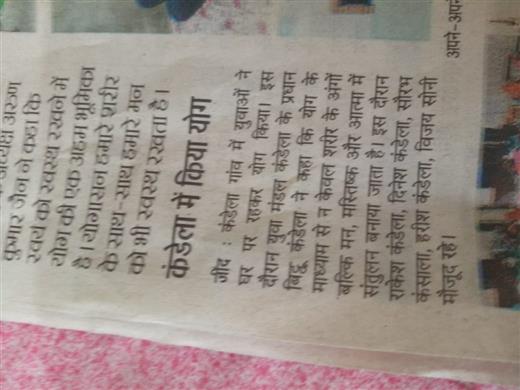 कुमार जैन ने कहा कि
स्वयं को स्वस्थ रखने में
योग की एक अहम भूमिका
है। योगासन हमारे शरीर
के साथ-साथ हमारे मन
को भी स्वस्थ रखता है।
कंडेला में किया योग
जींद : कंडेला गांव में युवाओं ने
घर पर रहकर योग किया। इस
दौरान युवा मंडल कंडेला के प्रधान
बिट्टू कंडेला ने कहा कि योग के
माध्याम से न केवल शरीर के अंगों
बल्कि मन, मस्तिष्क और आत्मा में
संतुलन बनाया जाता है। इस दौरान
राकेश कंडेला, दिनेश कंडेला, सौरभ
कंसाला, हरीश कंडेला, विजय सोनी
मौजूद रहे।
अपने-अपने